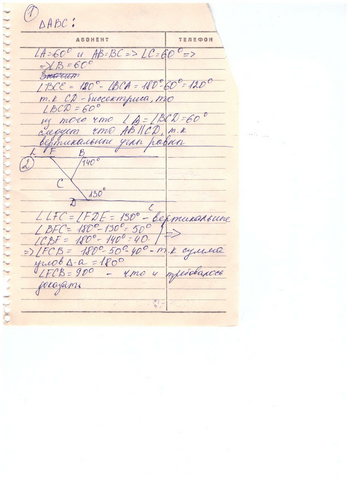 ①
ΔABC:
АБОНЕНТ ТЕЛЕФОН
∠A=60° и AB=BC=>∠C=60°=>
=>∠B=60°
Значит
∠BCE = 180°-∠BCA=180°-60°=120°
т.к CD-биссектриса, то
∠BCD=60°
из того что ∠B=∠BCD=60°
следует что AB∥CD, т.к
вертикальные углы равны
②
F B
140°
C
130°
D
∠LFC=∠FDE=130°-вертикальные
∠BFC=180°-130°=50°
∠CBF=180°-140°=40°
=>∠FCB= 180°-50°-40°-т.к сумма
углов Δ-а=180°
∠FCB=90° - что и требовалось
доказать